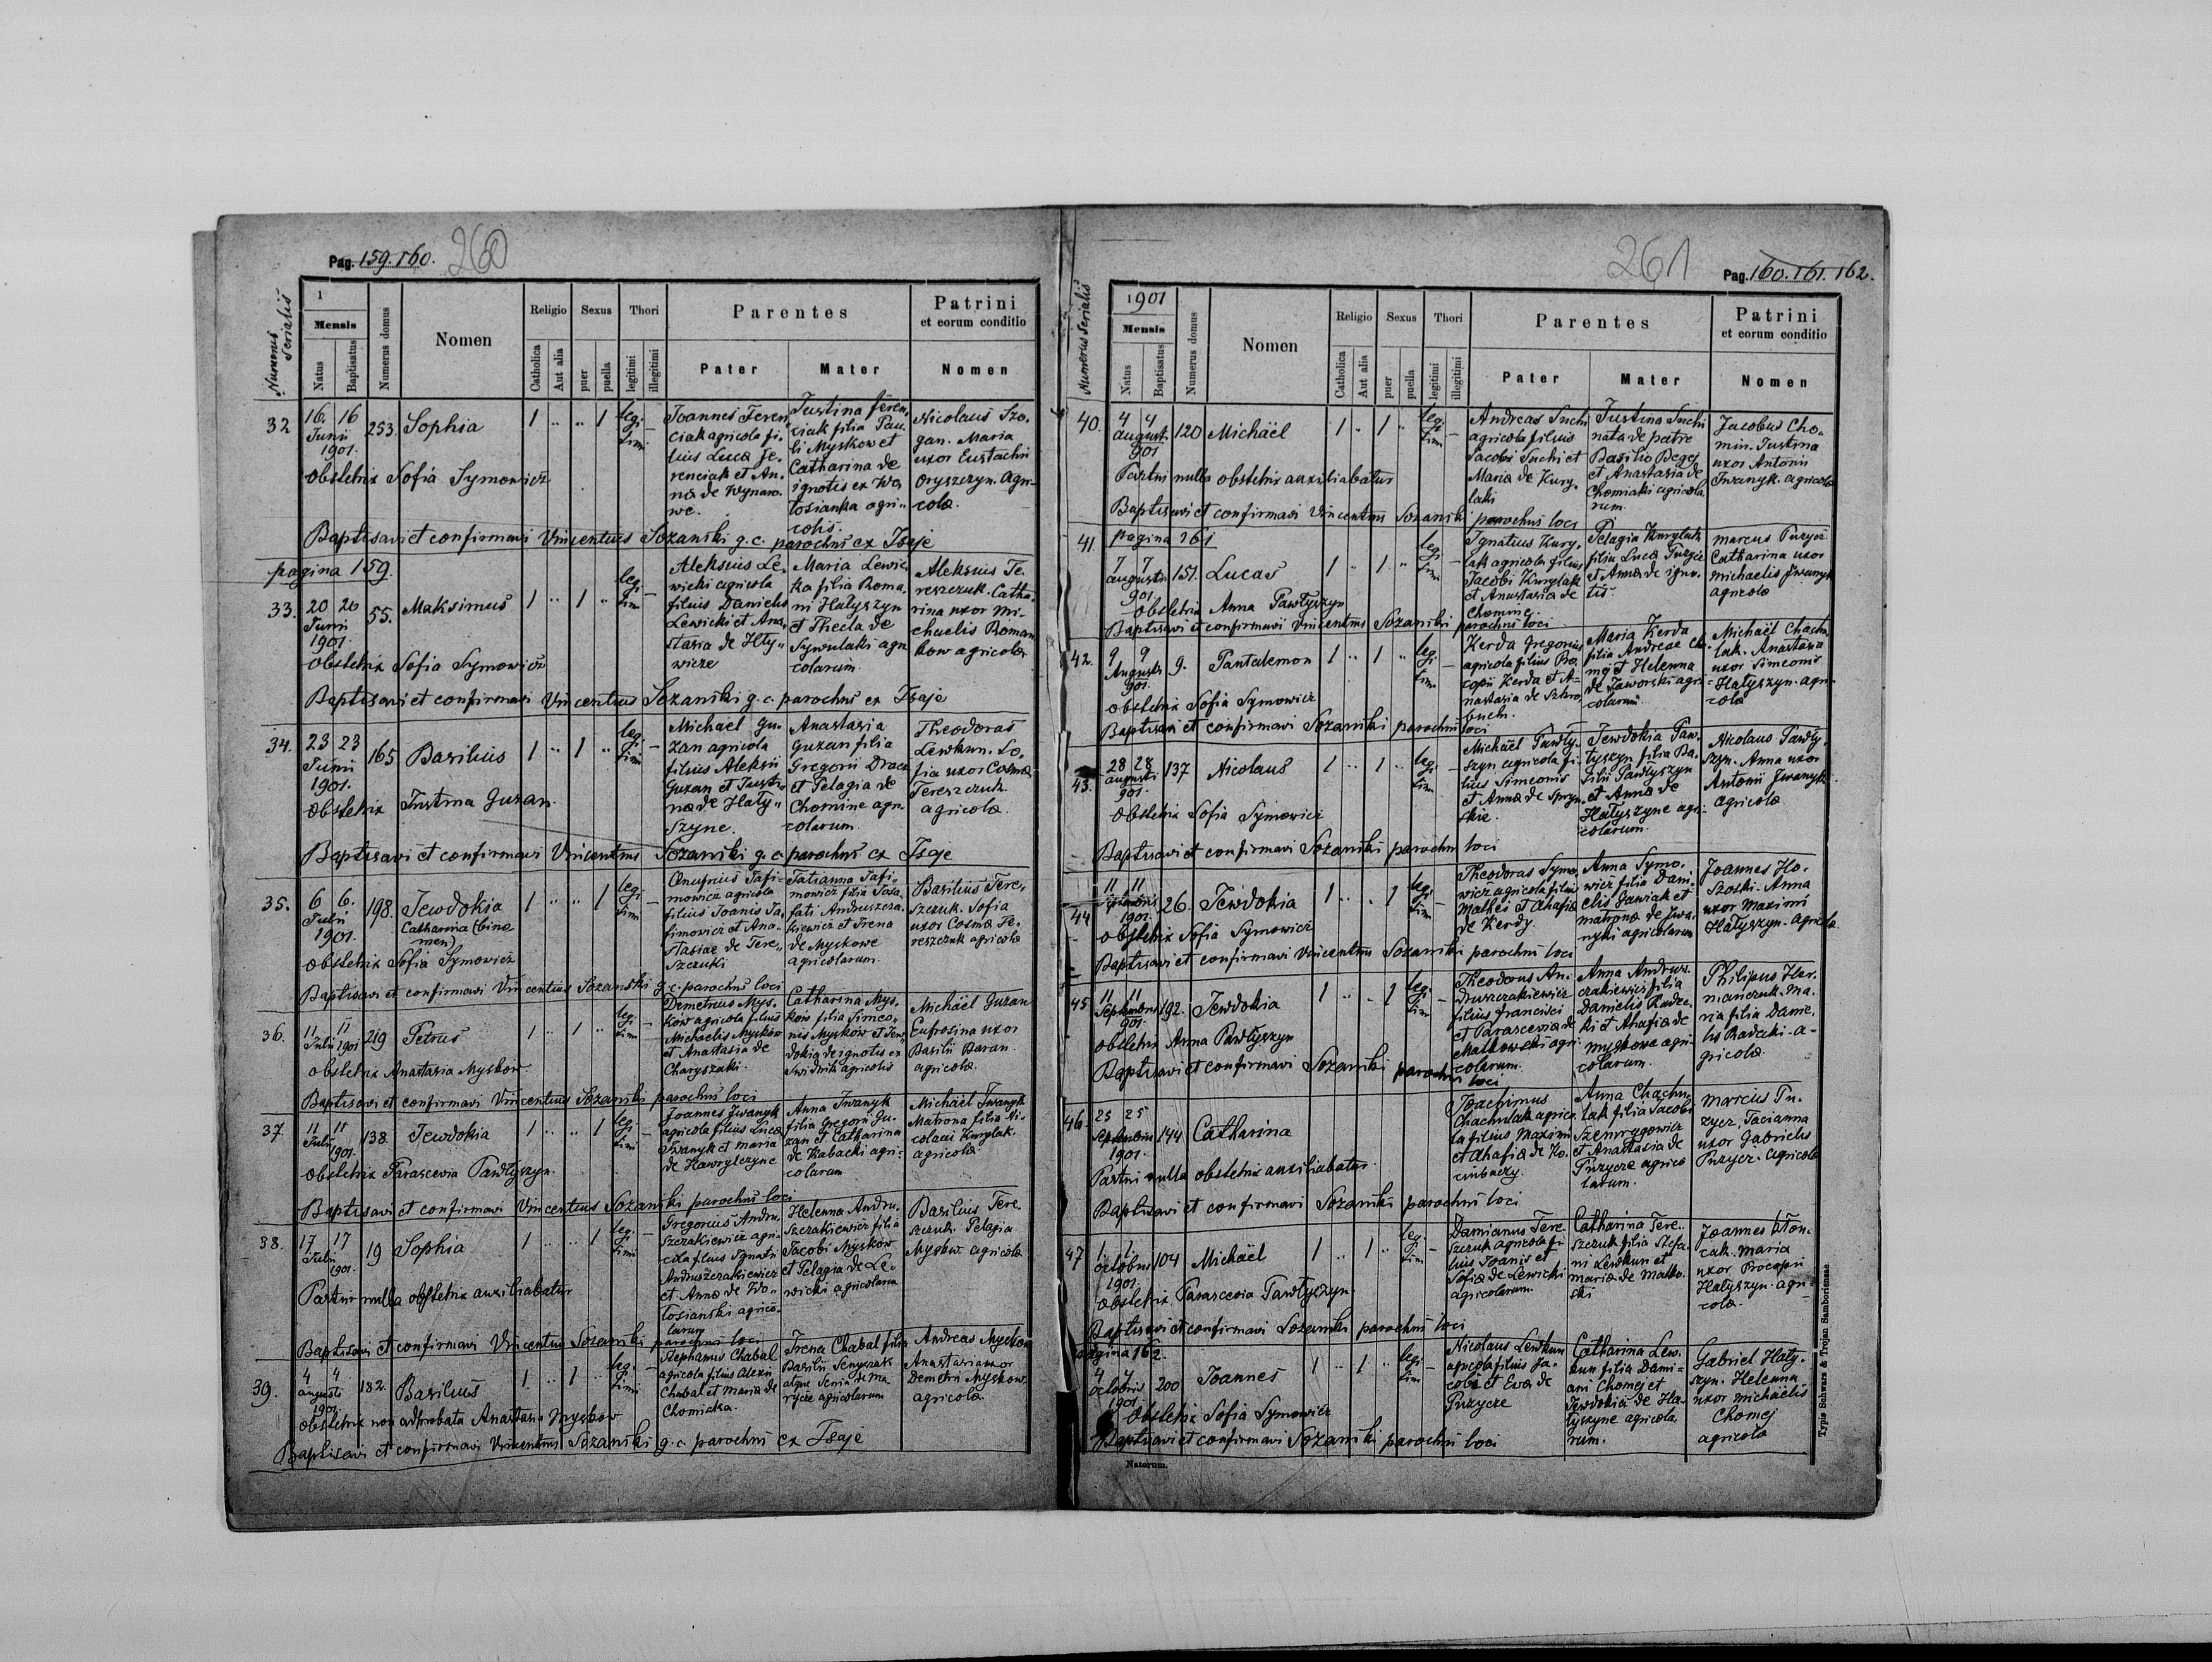 Pag. 159. 160. 260
Numerus serialis
1
Mensis
Natus
Baptisatus
Numerus domus
Nomen
Religio
Catholica
Aut alia
Sexus
puer
puella
Thori
legitimi
illegitimi
Parentes
Pater
Mater
Patrini
et eorum conditio
Nomen
32 16. 16 253. Sophia 1 .. .. 1 legi- timi
Junii
1901.
Joannes Feren-
ciak agricola fi-
lius Luca Fe-
renciak et An-
na de Wynaro-
we.
Justina Feren-
ciak filia Pau-
li Myskow et
Catharina de
ignotis ex Wo
losianka agri-
colis.
Nicolaus Szo-
gan. Maria
uxor Eustachii
Oryszczyn. Agri-
cola.
Obstetrix Sofia Symowicz
Baptisavi et confirmavi Vincentius Sozański g. c. parochus ex Isaje
pagina 159.
33. 20 20 55. Maksimus 1 .. 1 .. legi- timi
Junii
1901.
Aleksius Le-
wicki agricola
filius Danielis
Lewicki et Ana-
stasia de Hły-
wicze
Maria Lewic-
ka filia Roma-
ni Hałyszyn
et Thecla de
Sywulaki agri
colarum.
Aleksius Te-
reszczuk. Catha-
rina uxor Mi-
chaelis Roman
kow agricola
Obstetrix Sofia Symowicz
Baptisavi et confirmavi Vincentius Sozański g. c. parochus ex Isaje
34. 23 23 165 Basilius 1 .. 1 .. legi- timi
Junii
1901.
Michael Gu-
zan agricola
filius Aleksii
Guzan et Justi-
na de Hały-
szyne.
Anastasia
Guzan filia
Gregorii Dracz
et Pelagia de
Chomine agri-
colarum.
Theodorus
Lewkun. So-
fia uxor Cosma
Tereszczuk
agricola.
Obstetrix Justina Guzan.
Baptisavi et confirmavi Vincentius Sozański g. c. parochus ex Isaje
35. 6 6. 198. Jewdokia 1 .. .. 1 legi- timi
Julii
1901.
Catharina (bino
men)
Onufrius Jafi-
mowicz agricola
filius Joanis Ja-
fimowicz et Ana-
stasiae de Tere-
szczuki
Tatianna Jafi-
mowicz filia Josa-
fati Andruszcza-
kiewicz et Irena
de Myskowe
agricolarum.
Basilius Tere-
szczuk. Sofia
uxor Cosma Te-
reszczuk agricola
Obstetrix Sofia Symowicz
Baptisavi et confirmavi Vincentius Sozański g. c. parochus loci
36. 11 11 219 Petrus 1 .. 1 .. legi- timi
Julii 1901
Demetrius Mys-
kow agricola filius
Michaelis Myskow
et Anastasia de
Charyszaki.
Catharina Mys-
kow filia Simeo-
nis Myskow et Jew-
dokia de ignotis ex
Swidnik agricolis
Michaël Guzan
Eufrosina uxor
Basilii Baran.
agricola.
Obstetrix Anastasia Myskow.
Baptisavi et confirmavi Vincentius Sozański parochus loci
37. 11 11 138. Jewdokia 1 .. .. 1 legi- timi
Julii 1901.
Joannes Iwanyk
agricola filius Luca
Iwanyk et Maria
de Hawrylczyne
Anna Iwanyk
filia Gregorii Gu-
zan et Catharina
de Kabacki agri-
colarum
Michaël Iwanyk
Matrona filia Ni-
colai Kurylak.
agricola.
Obstetrix Parascevia Pawłyszyn.
Baptisavi et confirmavi Vincentius Sozański parochus loci
38. 17 17 19 Sophia 1 .. .. 1 legi- timi
Julii 1901.
Gregorius Andru-
szczakiewicz agri-
cola filius Ignatii
Andruszczakiewicz
et Anna de Wo-
łosianski agrico-
larum
Helenna Andru-
szczakiewicz filia
Jacobi Myskow
et Pelagia de Le-
wicki agricolarum
Basilius Tere-
szczuk. Pelagia
Myskow. agricola
Partui nulla obstetrix auxiliabatur
Baptisavi et confirmavi Vincentius Sozański parochus loci
39. 4 4 182. Basilius 1 .. 1 .. legi- timi
augusti
1901.
Stephanus Chabal
agricola filius Alexii
Chabal et Maria de
Chomiaka.
Irena Chabal filia
Basilii Senyszak
atque Senia de Ma-
rycze agricolarum
Andreas Myskow
Anastasia uxor
Demetri Myskow.
agricola.
Obstetrix non adprobata Anastasia Myskow
Baptisavi et confirmavi Vincentius Sozański g. c. parochus ex Isaje
261 Pag. 160. 161. 162.
Numerus serialis
1901
Mensis
Natus
Baptisatus
Numerus domus
Nomen
Religio
Catholica
Aut alia
Sexus
puer
puella
Thori
legitimi
illegitimi
Parentes
Pater
Mater
Patrini
et eorum conditio
Nomen
40. 4 4 120 Michäel 1 .. 1 .. legi- timi
augusti
901
Andreas Suchi
agricola filius
Jacobi Suchi et
Maria de Kury-
laki
Justina Suchi
nata de patre
Basilio Begej
et Anastasia de
Chomiaki agricola
rum.
Jacobus Cho-
min. Justina
uxor Antonii
Iwanyk. agricola
Partui nulla obstetrix auxiliabatur
Baptisavi et confirmavi Vincentius Sozański parochus loci
41. pagina 161
7 7 151. Lucas 1 .. 1 .. legi- timi
augusti
901
Ignatius Kury-
lak agricola filius
Jacobi Kurylak
et Anastasia de
Chomine.
Pelagia Kurylak
filia Luca Puzycz
et Anna de igno-
tis.
Marcus Puzycz
Catharina uxor
Michaelis Iwanyk
agricola
Obstetrix Anna Pawłyszyn
Baptisavi et confirmavi Vincentius Sozański parochus loci
42. 9 9 9. Pantalemon 1 .. 1 .. legi- timi
Augusti
901.
Kerda Gregorius
agricola filius Pro-
copii Kerda et A-
nastasia de Sztro
buch.
Maria Kerda
filia Andreae Cho-
mej et Helenna
de Jaworski agri-
colarum.
Michaël Chachu-
lak. Anastasia
uxor Simeonis
Hałyszyn. agri-
cola
Obstetrix Sofia Symowicz
Baptisavi et confirmavi Sozański parochus loci
43. 28 28 137 Nicolaus 1 .. 1 .. legi- timi
augusti
901.
Michäel Pawły-
szyn agricola fi-
lius Simeonis
et Anna de Spryn-
skie.
Jewdokia Paw-
łyszyn filia Ba-
silii Pawłyszyn
et Anna de
Hałyszyne agri-
colarum.
Nicolaus Pawły-
szyn. Anna uxor
Antonii Iwanyk.
Agricola
Obstetrix Sofia Symowicz
Baptisavi et confirmavi Sozański parochus loci
44 11 11 26. Jewdokia 1 .. .. 1 legi- timi
Septembris
1901.
Theodorus Symo-
wicz agricola filius
Mathei et Ahafia
de Kerdy.
Anna Symo-
wicz filia Dani-
elis Gawiak et
Matrona de Iwa-
nyki agricolarum
Joannes Ho-
szoski. Anna
uxor Maximi
Hałyszyn. Agricola
Obstetrix Sofia Symowicz
Baptisavi et confirmavi Vincentius Sozański parochus loci
45 11 11 192. Jewdokia 1 .. .. 1 legi- timi
Septembris
901.
Theodorus An-
druszczakiewicz
filius Francisci
et Parascevia de
Malkowski agri-
colarum.
Anna Andrusz-
czakiewicz filia
Danielis Radec-
ki et Ahafia de
Myskowe agri-
colarum.
Philipus Har-
manczuk. Ma-
ria filia Danie-
lis Radecki. a-
gricola.
Obstetrix Anna Pawłyszyn
Baptisavi et confirmavi Sozański parochus loci
46. 25 25 144. Catharina
Septembris
1901.
Joachimus
Chachulak agrico-
la filius Maximi
et Ahafia de Ko-
ciubaczy.
Anna Chachu-
lak filia Jacobi
Szemrygowicz
et Anastasia de
Puzycze agrico
larum.
Marcus Pu-
zycz, Tacianna
uxor Gabrielis
Puzycz. Agricola
Partui nulla obstetrix auxiliabatur.
Baptisavi et confirmavi Sozański parochus loci
47 1. 1. 104 Michäel 1 .. 1 .. legi- timi
octobris
1901.
Damianus Tere-
szczuk agricola fi-
lius Joanis et
Sofia de Lewicki
agricolarum.
Catharina Tere-
szczuk filia Stefa-
ni Lewkun et
Maria de Malko-
ski
Joannes Won-
cak. Maria
uxor Procopii
Hałyszyn. agri-
cola.
Obstetrix Parascevia Pawłyszyn.
Baptisavi et confirmavi Sozański parochus loci
pagina 162.
4 4 200 Joannes 1 .. 1 .. legi- timi
octobris
1901
Nicolaus Lewkun
agricola filius Ja-
cobi et Eva de
Puzycze
Catharina Lew-
kun filia Dami-
ani Chomej et
Jewdokia de Ha-
łyszyne agricola
rum.
Gabriel Hały-
szyn. Helenna
uxor Michäelis
Chomej
agricola
Obstetrix Sofia Symowicz
Baptisavi et confirmavi Sozański parochus loci
Natorum.
Typis Schwarz & Trojan Samboriensae.